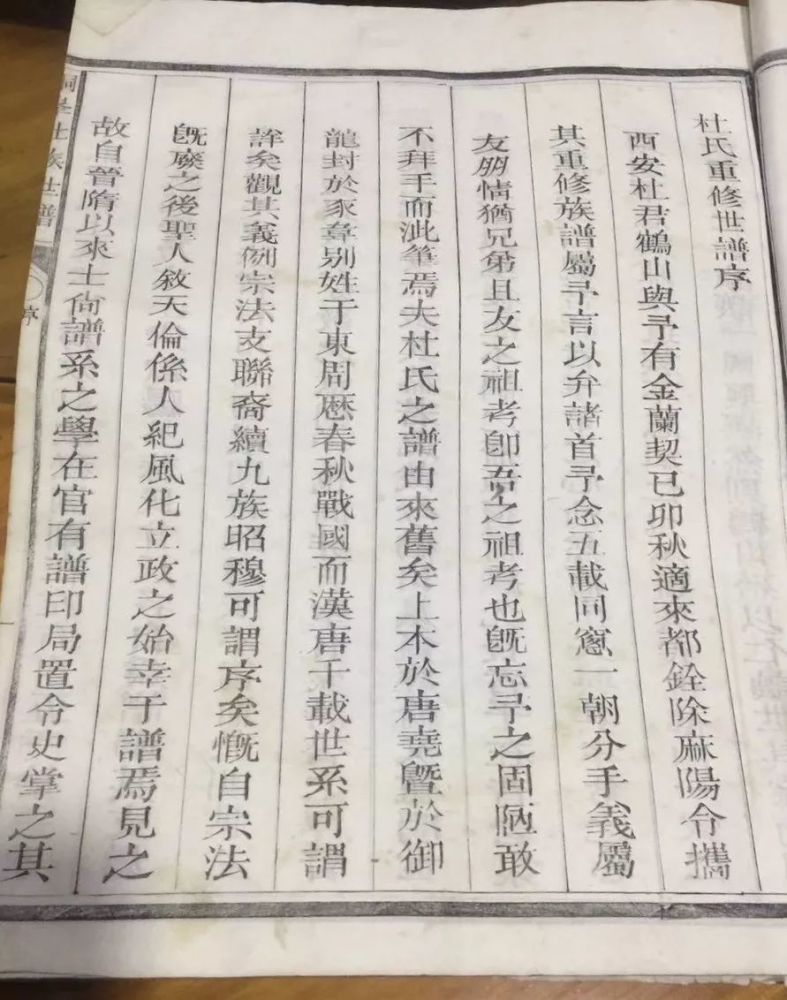 杜氏重修世譜序
西安杜君鶴山與予有金蘭契已卯秋適來都銓除麻陽令攜
其重修族譜屬予言以弁諸首予念五載同窻一朝分手義屬
友朋情猶兄弟且友之祖考卽吾之祖考也旣忘予之固陋敢
不拜手而泚筆焉夫杜氏之譜由來舊矣上本於唐堯曁於御
龍封於豕韋别姓于東周歴春秋戰國而漢唐千載世系可謂
詳矣觀其義例宗法支聯裔續九族昭穆可謂序矣慨自宗法
旣廢之後聖人敘天倫係人紀風化立政之始幸于譜焉見之
故自晉隋以來士尙譜系之學在官有譜印局置令史掌之其
杜族世譜
序